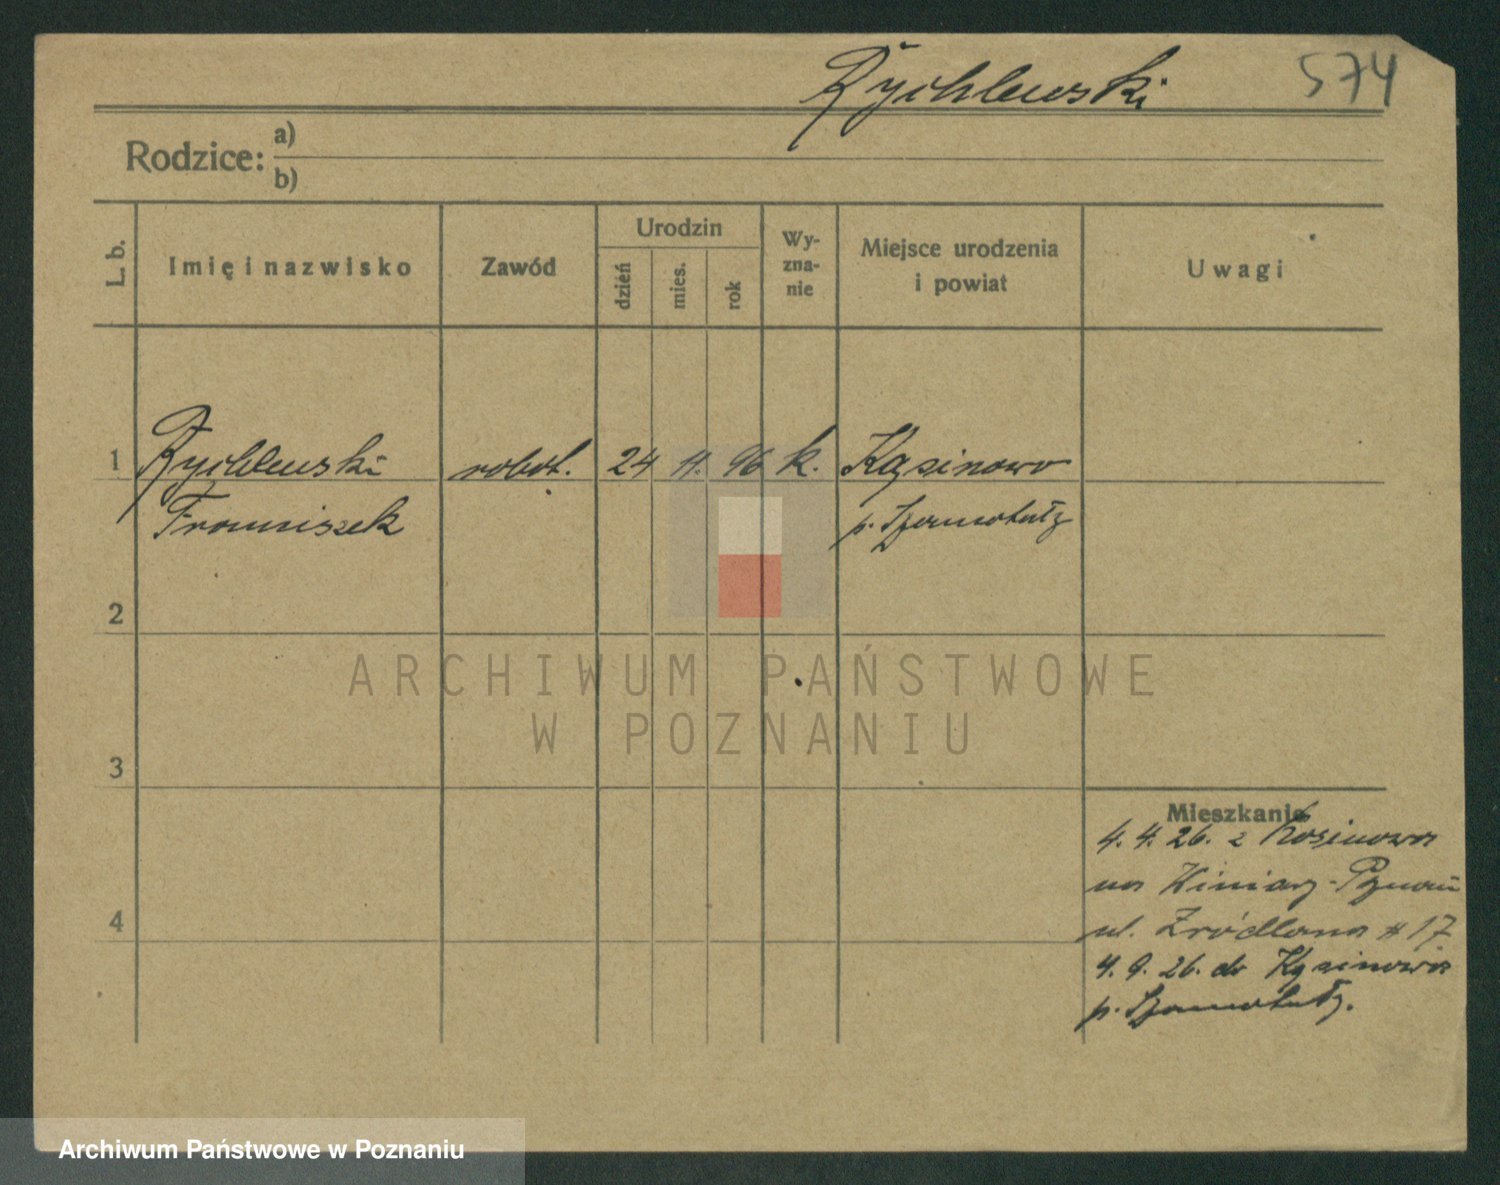 Rychlewski 574
Rodzice: a)
b)
L. b. Imię i nazwisko Zawód Urodzin dzień mies. rok Wy-zna-nie Miejsce urodzenia i powiat Uwagi
1 Rychlewski robot. 24 11. 96 k. Kąsinowo
Franciszek p. Szamotuły
2
ARCHIWUM PAŃSTWOWE
W POZNANIU
3
Mieszkanie
4. 4. 26. z Kosinowa
na Winiary-Poznań
4
ul. Źródlana # 17
4. 9. 26. do Kąsinowa
p. Szamotuły.
Archiwum Państwowe w Poznaniu